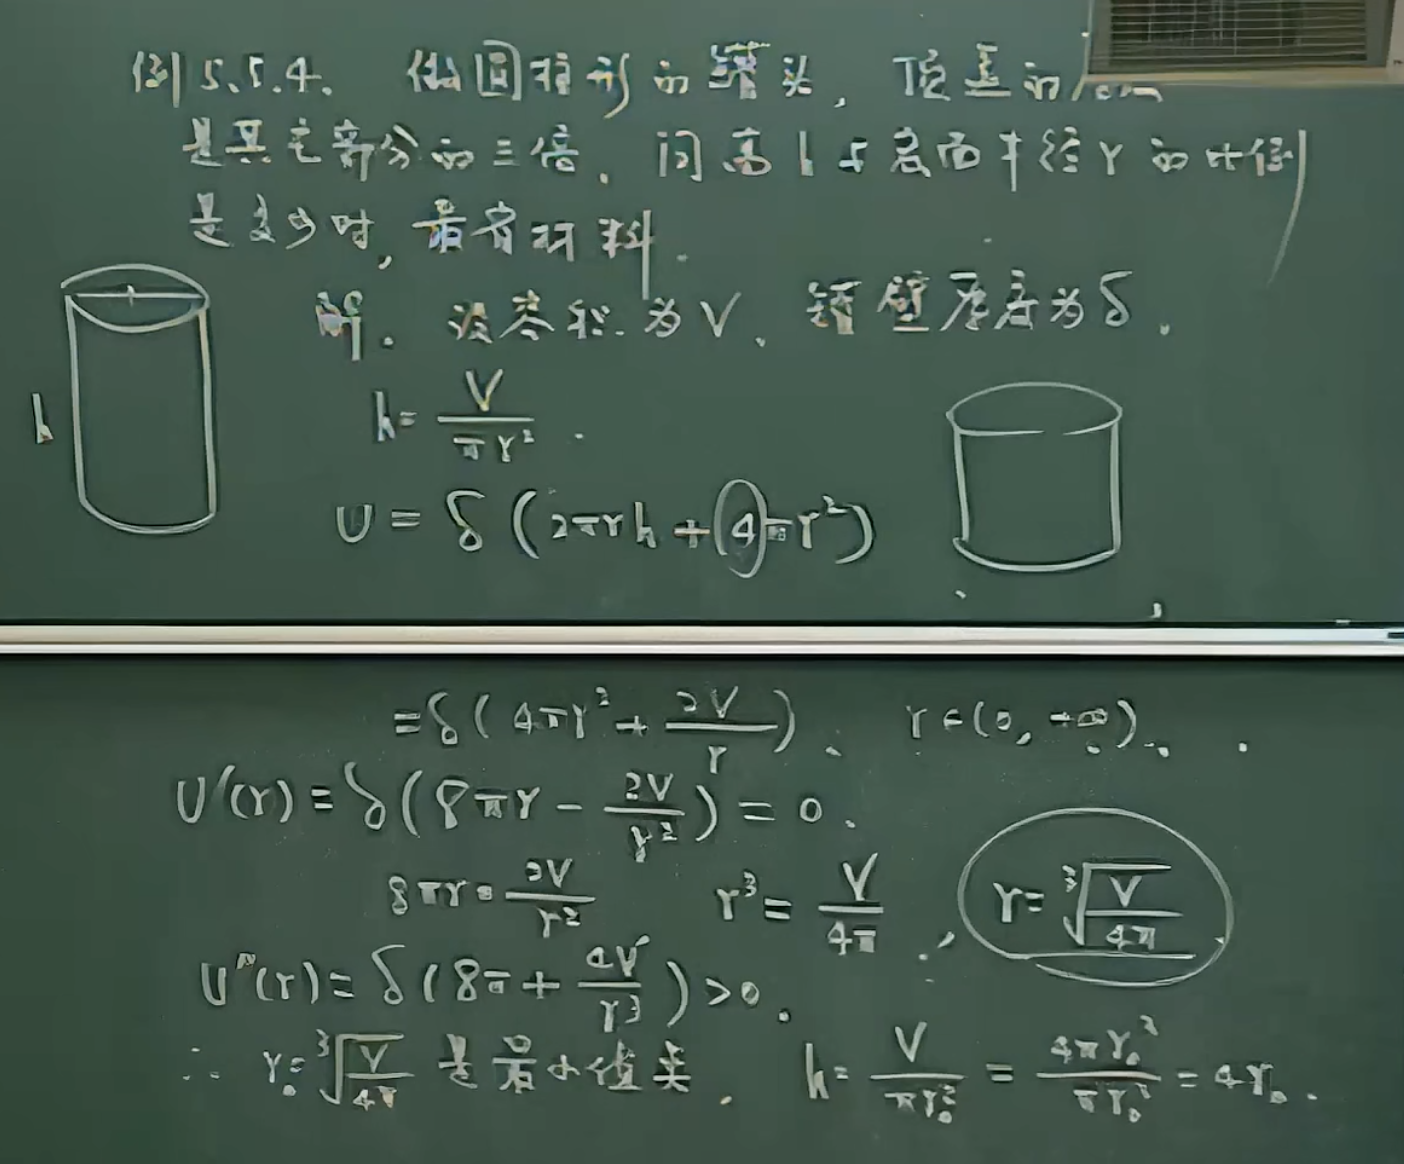 例5.5.4. 做圆柱形的罐头, 顶盖的
是其它部分的三倍. 问高h与底面半径r的比例
是多少时, 最省材料.
解. 设容积为V. 罐壁厚度为δ.
h
h = V/(πr²) .
U = δ(2πrh + 4πr²)
= δ(4πr² + 2V/r). r∈(0, +∞).
U'(r) = δ(8πr - 2V/r²) = 0.
8πr = 2V/r² r³ = V/(4π), r = ∛(V/(4π))
U''(r) = δ(8π + 4V/r³) > 0.
∴ r₀ = ∛(V/(4π)) 是最小值点. h = V/(πr₀²) = 4πr₀³/(πr₀²) = 4r₀.